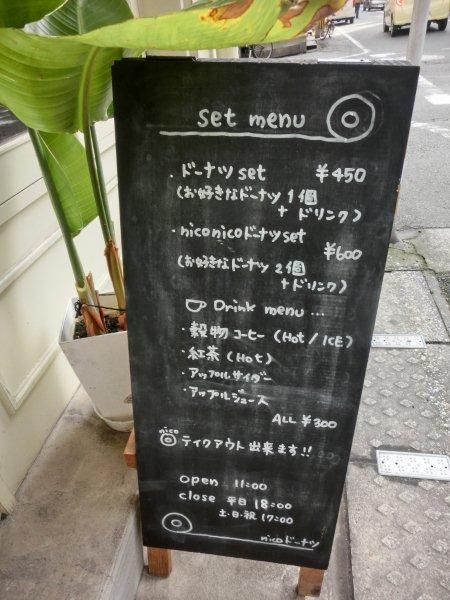 set menu
・ドーナツ set ¥450
(お好きなドーナツ 1個
+ ドリンク)
・nico nico ドーナツ set
¥600
(お好きなドーナツ 2個
+ ドリンク)
Drink menu ...
・穀物コーヒー (Hot / ICE)
・紅茶 (Hot)
・アップルサイダー
・アップルジュース
ALL ¥300
nico
テイクアウト出来ます!!
open 11:00
close 平日 18:00
土・日・祝 17:00
nico ドーナツ